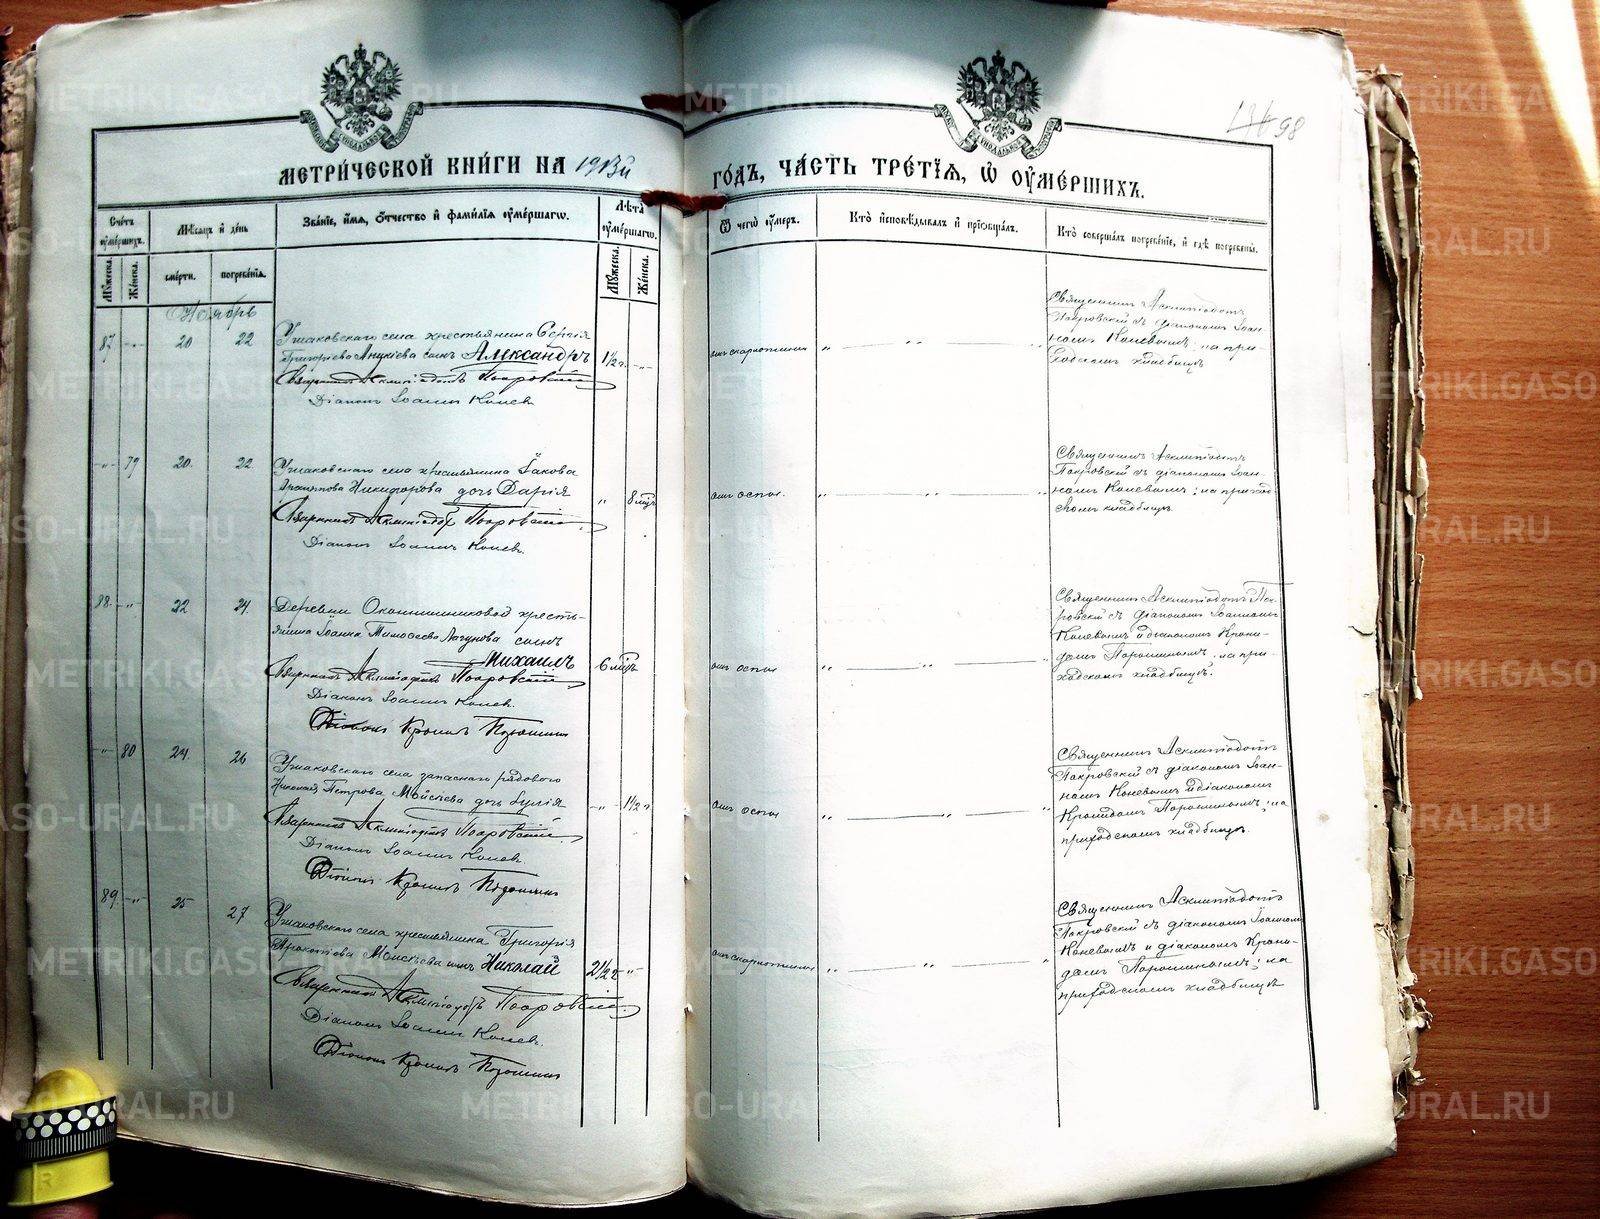 136 98
МЕТРИЧЕСКОЙ КНИГИ НА 1913й
ГОДЪ, ЧАСТЬ ТРЕТІЯ, Ѿ ОУМЕРШИХЪ.
Счетъ оумершихъ.
Мѣсяцъ и день
Званіе, имя, отчество и фамилія оумершагѡ.
Лѣта оумершагѡ.
Мужеска.
Женска.
смерти.
погребенія.
Мужеска.
Женска.
Ѿ чегѡ оумеръ.
Кто исповѣдывалъ и пріобщалъ.
Кто совершалъ погребеніе, и гдѣ погребены.
Ноябрь
87 20 22
Ушаковскаго села крестьянина Сергія
сынъ Александръ
1½ г.
Священникъ Асклипіодотъ Покровскій
Діаконъ Іоаннъ Коневъ
отъ скарлотины
Священникъ Асклипіодотъ
Покровскій съ діакономъ Іоан-
номъ Коневымъ; на при-
ходскомъ кладбищѣ
79 20 22
Ушаковскаго села крестьянина Іакова
Никифорова дочь Дарія
8 мцъ
Священникъ Асклипіодотъ Покровскій
Діаконъ Іоаннъ Коневъ.
отъ оспы.
Священникъ Асклипіодотъ
Покровскій съ діакономъ Іоан-
номъ Коневымъ; на приход-
скомъ кладбищѣ.
88. 22 24.
Деревни крестья-
янина Іоанна Тимофеева сынъ
Михаилъ
6 мцъ
Священникъ Асклипіодотъ Покровскій
Діаконъ Іоаннъ Коневъ.
Діаконъ Кронидъ Порошинъ
отъ оспы
Священникъ Асклипіодотъ Пок-
ровскій съ діакономъ Іоанномъ
Коневымъ и діакономъ Крони-
домъ Порошинымъ; на при-
ходскомъ кладбищѣ.
80 24. 26
Ушаковскаго села запаснаго рядового
Николая Петрова Моисѣева дочь Іулія
1½ г
Священникъ Асклипіодотъ Покровскій
Діаконъ Іоаннъ Коневъ.
Діаконъ Кронидъ Порошинъ
отъ оспы
Священникъ Асклипіодотъ
Покровскій съ діакономъ Іоан-
номъ Коневымъ и діакономъ
Кронидомъ Порошинымъ; на
приходскомъ кладбищѣ.
89. 25 27
Ушаковскаго села крестьянина Григорія
Прокопіева Моисѣева сынъ Николай
2½ г
Священникъ Асклипіодотъ Покровскій
Діаконъ Іоаннъ Коневъ.
Діаконъ Кронидъ Порошинъ
отъ скарлотины
Священникъ Асклипіодотъ
Покровскій съ діакономъ Іоанномъ
Коневымъ и діакономъ Крони-
домъ Порошинымъ; на
приходскомъ кладбищѣ
METRIKI.GASO-URAL.RU